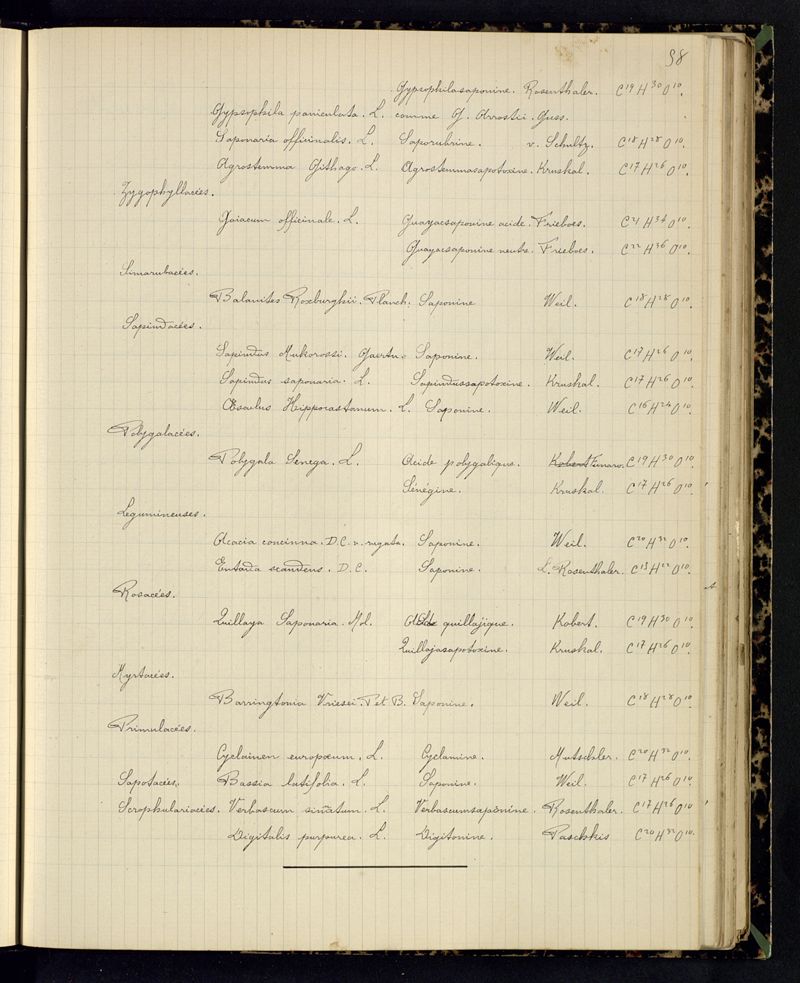 98
Gypsophilasaponine. Rosenthaler. C19 H30 O10.
Gypsophila paniculata. L. comme G. Arrostii. Guss.
Saponaria officinalis. L. Saporubrine. v. Schultz. C18 H28 O10.
Agrostemma Githago. L. Agrostemmasapotoxine. Kruskal. C17 H26 O10.
Zygophyllacées.
Gaiacum officinale. L. Guayacsaponine acide. Frieboes. C21 H34 O10.
Guayacsaponine neutre. Frieboes. C22 H36 O10.
Simarubacées.
Balanites Roxburghii. Planch. Saponine Weil. C18 H28 O10.
Sapindacées.
Sapindus Mukorossi. Gaertn. Saponine. Weil. C17 H26 O10.
Sapindus saponaria. L. Sapindussapotoxine. Kruskal. C17 H26 O10.
Œsculus Hippocastanum. L. Saponine. Weil. C16 H24 O10.
Polygalacées.
Polygala Senega. L. Acide polygalique. Kobert Funaro. C19 H30 O10.
Sénégine. Kruskal. C17 H26 O10.
Legumineuses.
Acacia concinna. D.C. v. rugata. Saponine. Weil. C20 H32 O10.
Entada scandens. D.C. Saponine. L. Rosenthaler. C15 H22 O10.
Rosacées.
Quillaya Saponaria. Mol. quillajique. Kobert. C19 H30 O10.
Quillajasapotoxine. Kruskal. C17 H26 O10.
Myrtacées.
Barringtonia Vriesei. T et B. Saponine. Weil. C18 H28 O10.
Primulacées.
Cyclamen europœum. L. Cyclamine. Mutschler. C20 H32 O10.
Sapotacées. Bassia latifolia. L. Saponine. Weil. C17 H26 O10.
Scrophulariacées. Verbascum sinatum. L. Verbascumsaponine. Rosenthaler. C17 H26 O10
Digitalis purpurea. L. Digitonine. Paschkis C20 H32 O10.